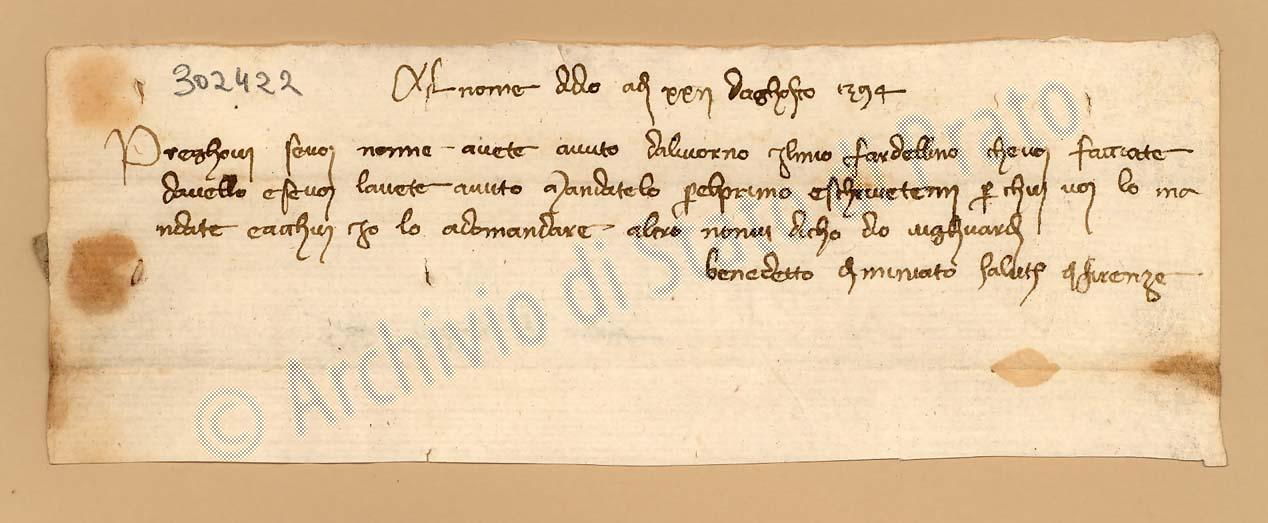 302422
Al nome ddio adj xxij daghosto 1394
Preghovi sevoi nonne avete avuto dalivorno ilmio fardellino chevoi facciate
davello esevoi lavete avuto mandatelo pelprimo eschrivetemi per chui voi lo ma
ndate eacchui io lo adomandare altro nonvi dicho dio vighuardi
benedetto di miniato saluti di firenze
© Archivio di Stato di Prato